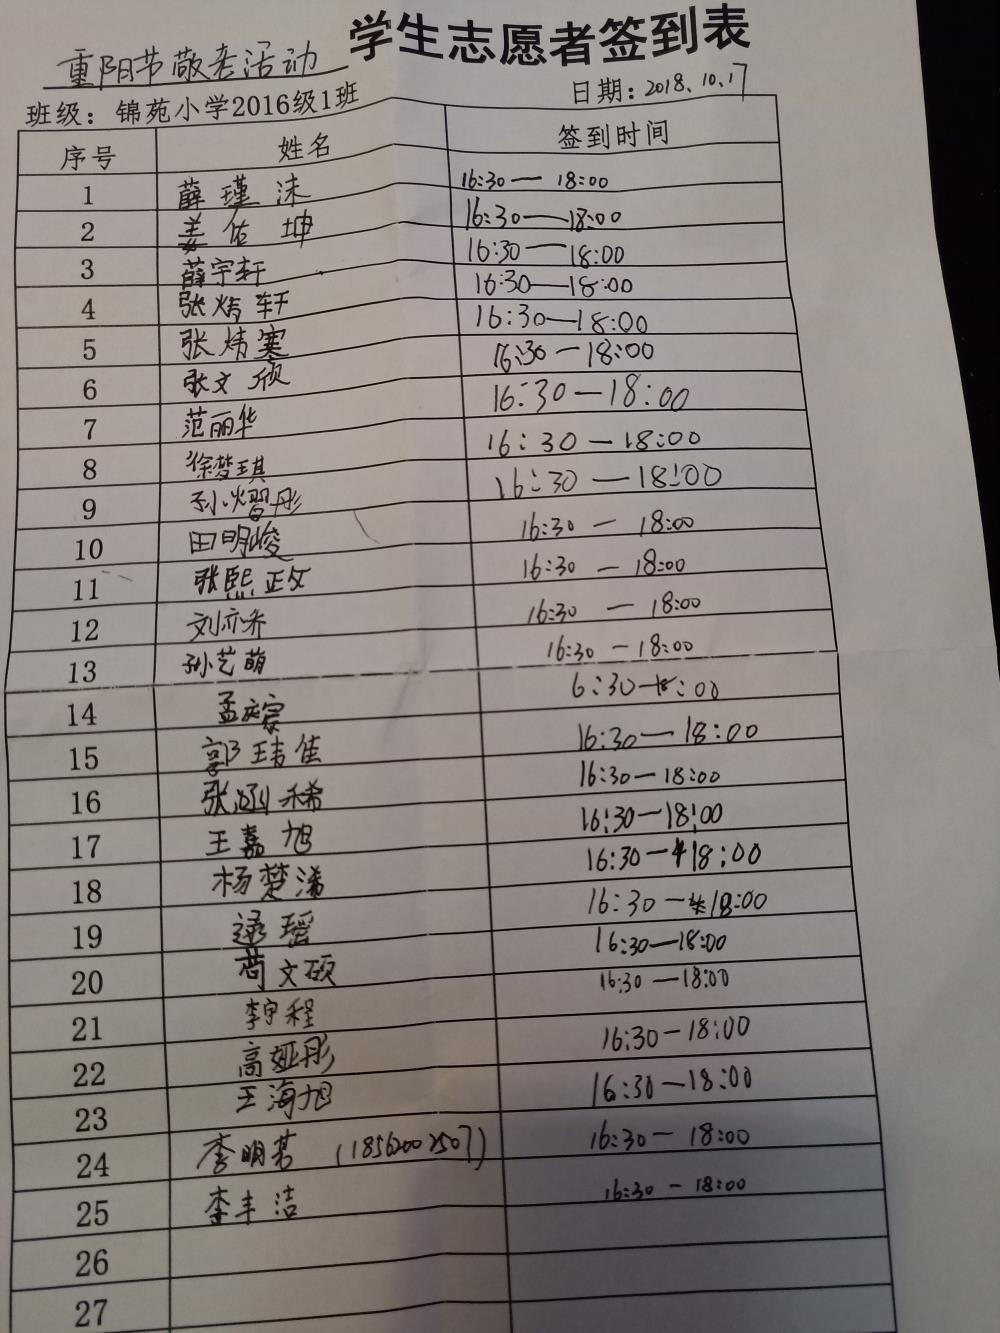 学生志愿者签到表
重阳节敬老活动
班级：锦苑小学2016级1班 日期：2018.10.17
序号 姓名 签到时间
1 薛瑾沫 16:30—18:00
2 姜佑坤 16:30—18:00
3 薛宇轩 16:30—18:00
4 张烤轩 16:30—18:00
5 张炜寒 16:30—18:00
6 张文硕 16:30—18:00
7 范丽华 16:30—18:00
8 徐梦琪 16:30—18:00
9 孙熠彤 16:30—18:00
10 田明峻 16:30—18:00
11 张熙正 16:30—18:00
12 刘亦乔 16:30—18:00
13 孙艺萌 16:30—18:00
14 孟庆宸 6:30—18:00
15 郭玮佳 16:30—18:00
16 张涵稀 16:30—18:00
17 王嘉旭 16:30—18:00
18 杨楚浠 16:30—18:00
19 逯瑶 16:30—18:00
20 苟文硕 16:30—18:00
21 李宇程 16:30—18:00
22 高娅彤 16:30—18:00
23 王海旭 16:30—18:00
24 李明茗 (18562002507) 16:30—18:00
25 李丰洁 16:30—18:00
26
27